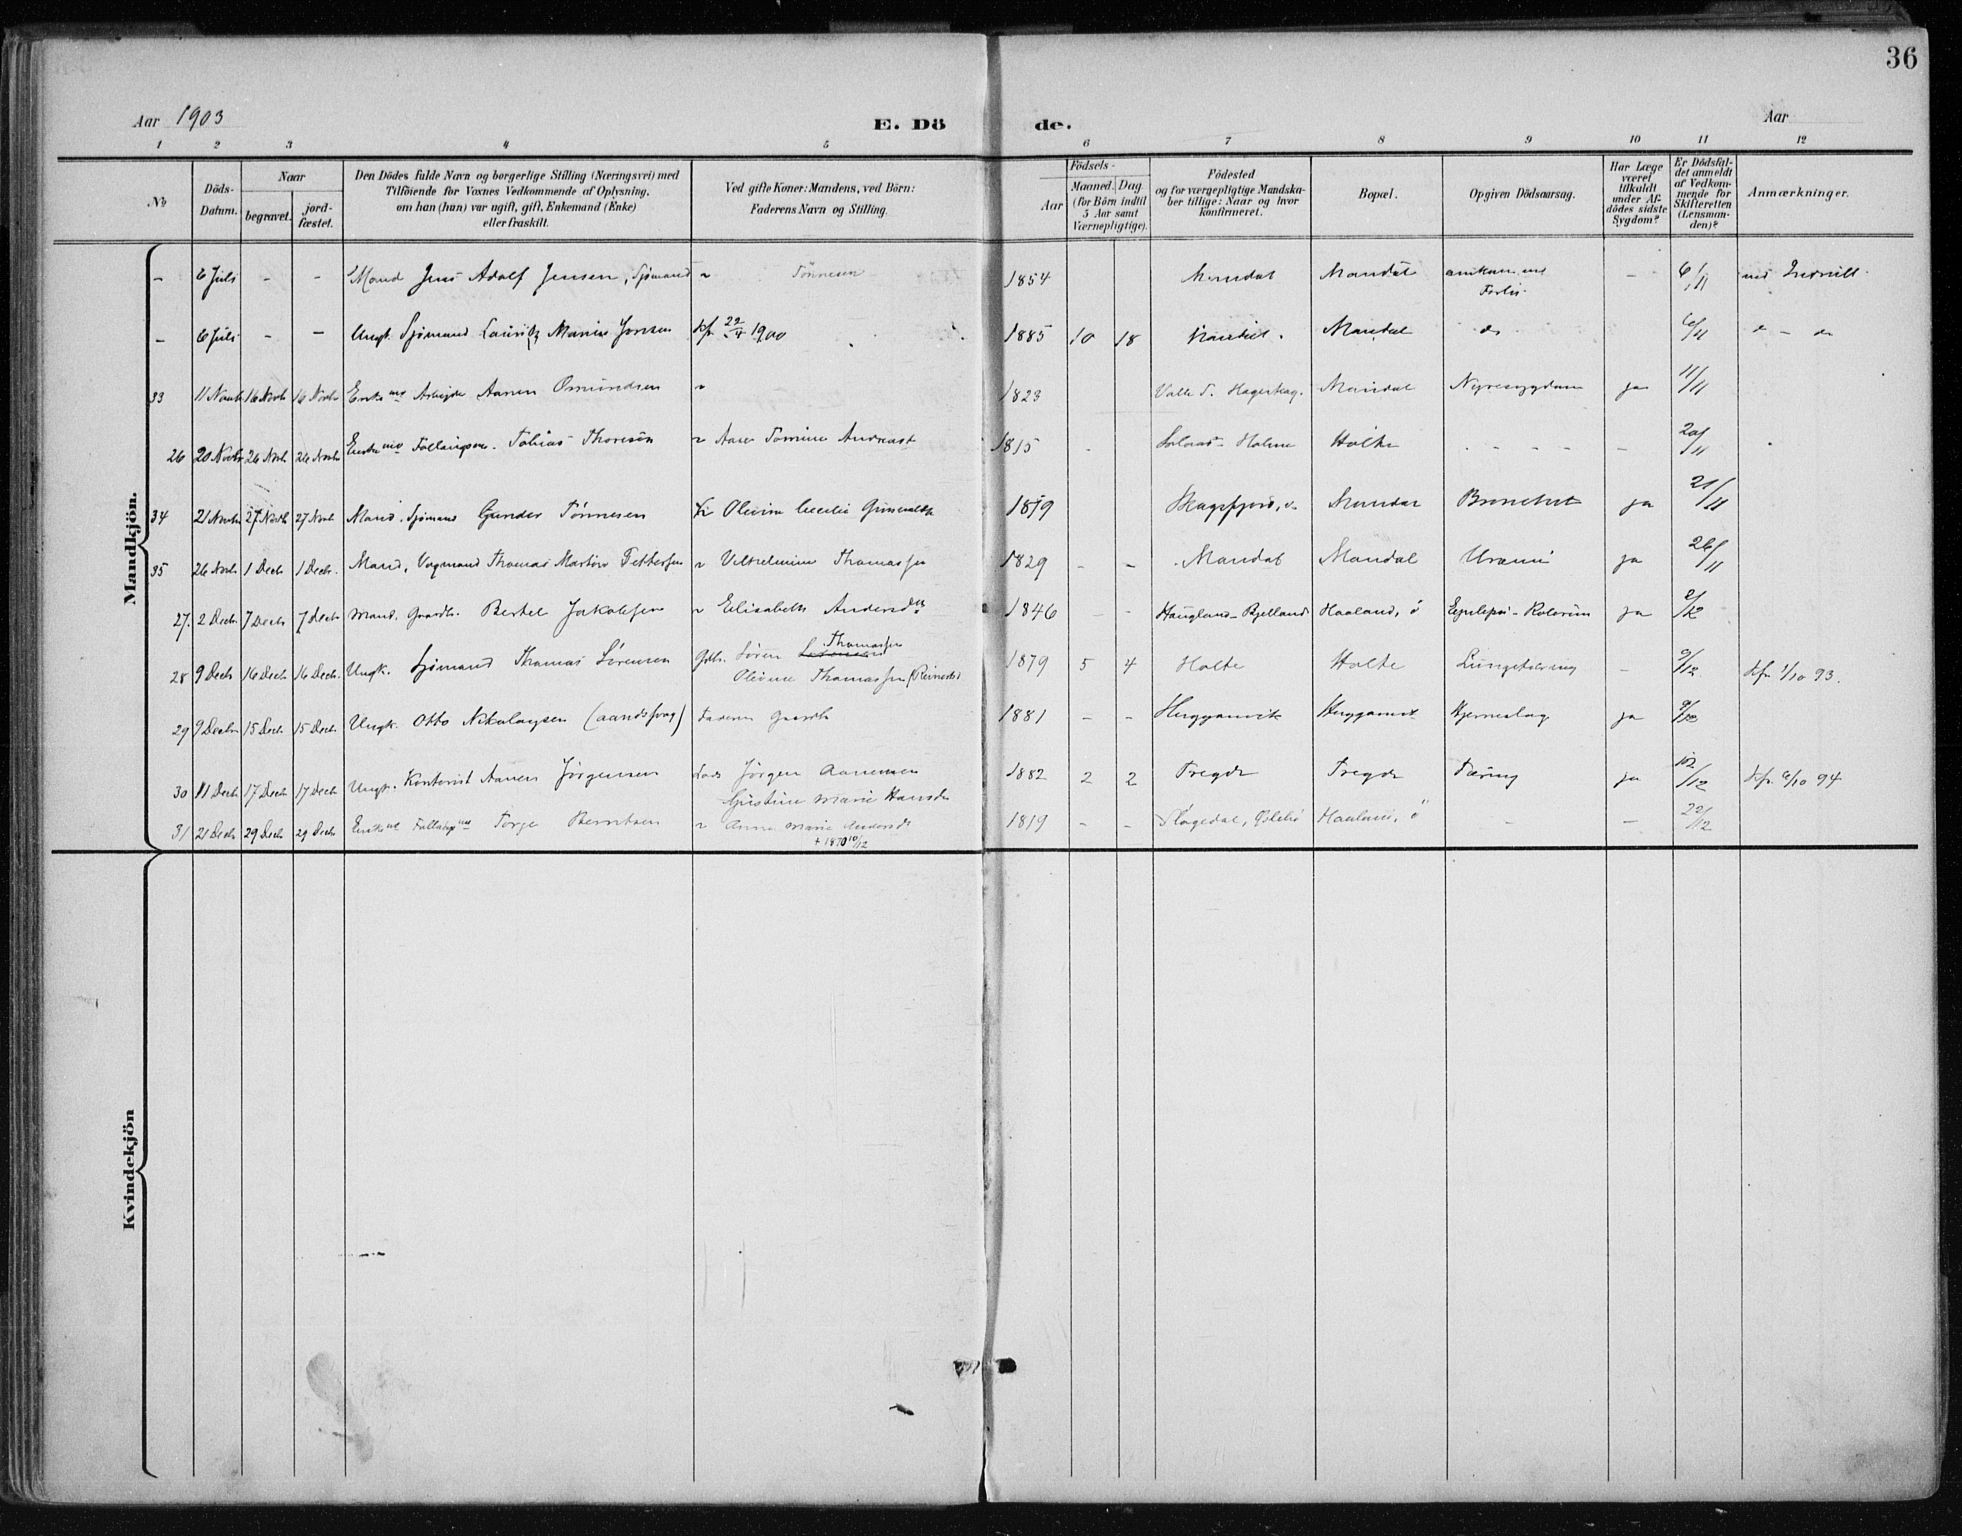 36
Aar 1903
E. Dö de.
Aar
1 2 3 4 5 6 7 8 9 10 11 12
No
Döds-Datum.
Naar
begravet.
jord-fæstet.
Den Dödes fulde Navn og borgerlige Stilling (Næringsvei) med
Tilföiende for Voxnes Vedkommende af Oplysning,
om han (hun) var ugift, gift, Enkemand (Enke)
eller fraskilt.
Ved gifte Koner: Mandens, ved Börn:
Faderens Navn og Stilling.
Födsels-
Aar
Maaned. Dag
(for Börn indtil
5 Aar samt
Værnepligtige).
Födested
og for værgepligtige Mandska-
ber tillige: Naar og hvor
konfirmeret.
Bopæl.
Opgiven Dödsaarsag.
Har Læge
været
tilkaldt
under Af-
dödes sidste
Sygdom?
Er Dödsfal-
det anmeldt
af Vedkom-
mende for
Skifteretten
(Lensman-
den)?
Anmærkninger.
Mandkjön.
- 6 Juli - - Mand Jens Adolf Jensen, Sjømand Tönnesen 1854 Mandal Mandal - 6/11
- 6 Juli - - Ungk. Sjømand Lauritz Marius Jensen kfr. 22/4 1900 1885 10 18 Mandal do 6/11
33 11 Novb 16 Novb 16 Novb Enkemd Arbejder Aanen Osmundsen 1823 Valle S. Mandal Nyresygdom ja 11/11
26 20 Novb 26 Novb 26 Novb Enkemd Tobias Thoresen 1815 Holme Holte - - - - - 20/11
34 21 Novb 27 Novb 27 Novb Mand. Sjømand Gunder Tönnesen Olivia Cecilie 1819 Mandal ja 21/11
35 26 Novb 1 Decb 1 Decb. Mand, Thomas Martin Pettersen Vilhelmine Thomassen 1829 - - Mandal Mandal Uræmi ja 26/11
27. 2 Decb 7 Decb 7 Decb Mand. Gaardb. Bertel Jakobsen Elisabeth Andersdtr 1846 - - Haugland - Bjelland Haaland, ö Epilepsi ja 2/12
28 9 Decb 16 Decb 16 Decb. Ungk. Sjömand Thomas Sörensen Gdb. Sören Thomassen
Olivine Thomassen 1879 5 4 Holte Holte Lungetæring - 9/12 kfr. 1/10 93.
29 9 Decb 15 Decb 15 Decb Ungk. Otto Nikolaysen Faderen Gaardb 1881 - - Hjerneslag ja 9/12
30 11 Decb 17 Decb 17 Decb Ungk. Kontorist Aanen Jörgensen Lods Jörgen Aanensen
Marie Hansdtr 1882 2 2 Tregde Tregde Tæring ja 12/12 kfr. 6/10 94
31 21 Decb 29 Decb 29 Decb Enkemd Terje Berntsen Anna Marie Andersdtr
+ 1870 10/12 1819 - - Haaland, ö - - 22/12
Kvindekjön